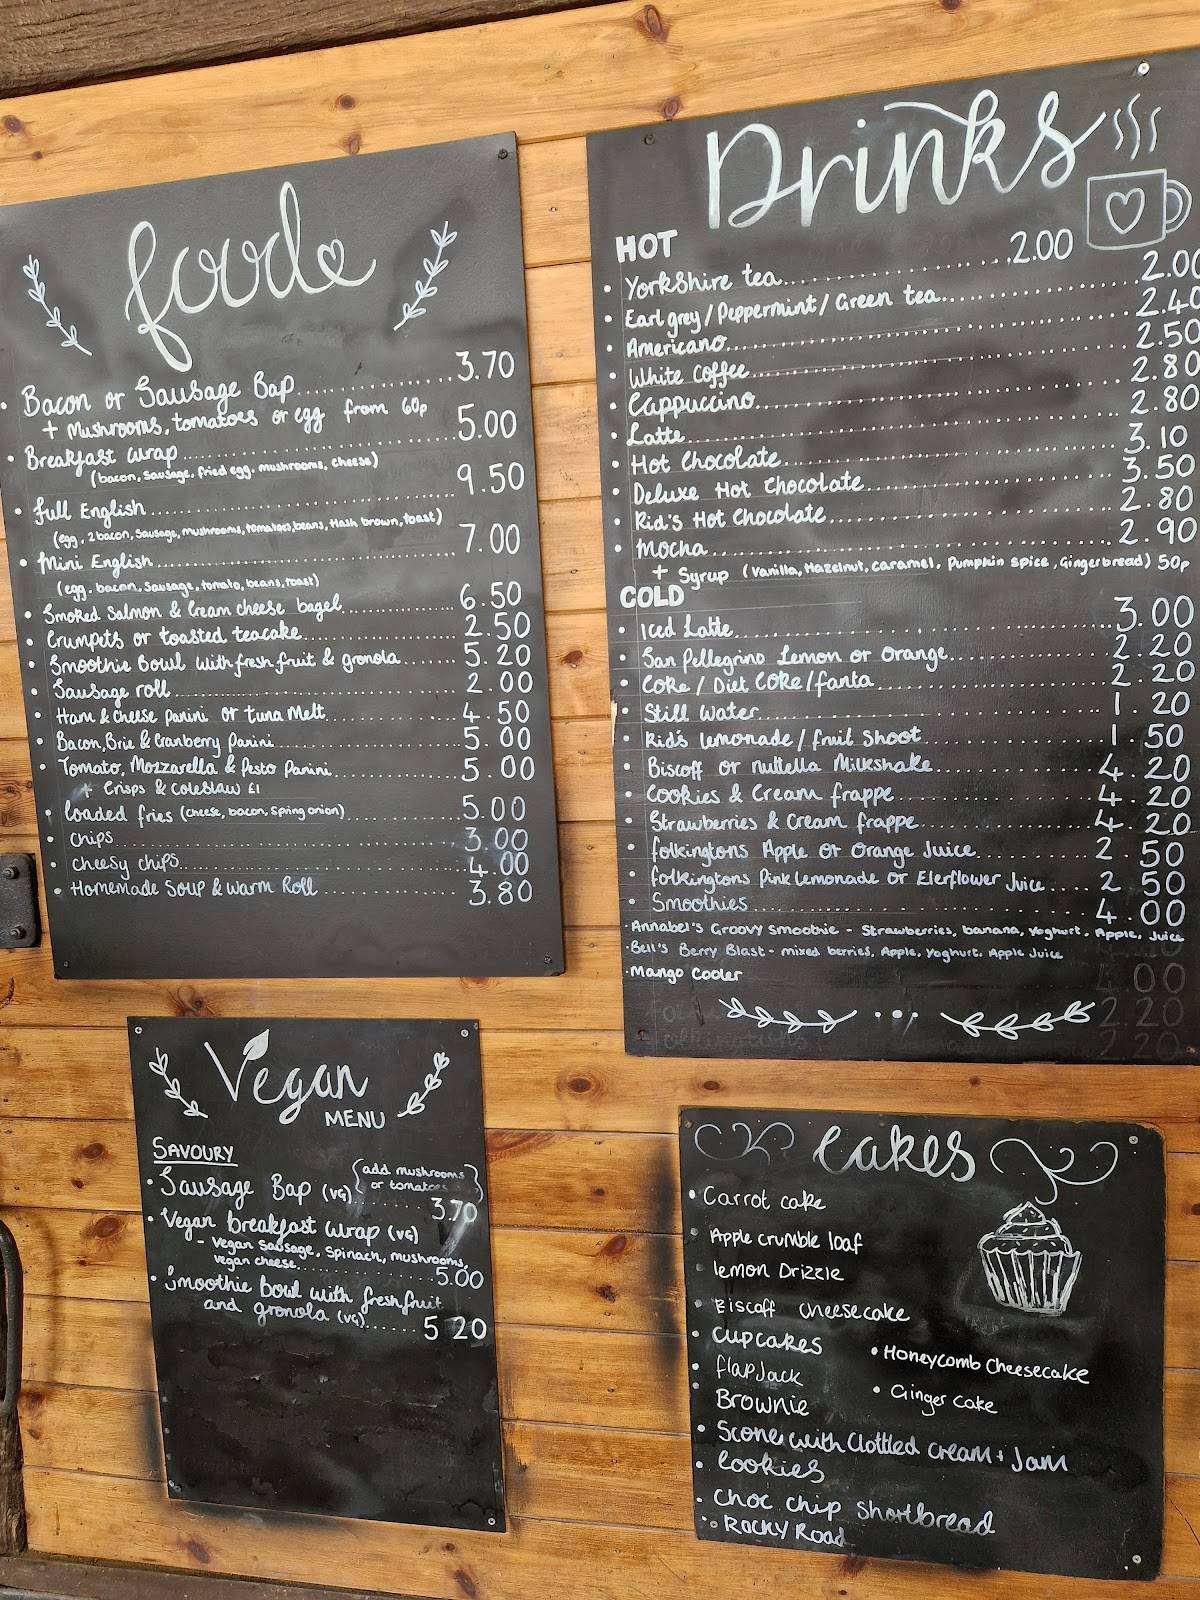 food
Bacon or Sausage Bap 3.70
+ Mushrooms, tomatoes or egg from 60p
Breakfast wrap 5.00
(bacon, sausage, fried egg, mushrooms, cheese)
full English 9.50
(egg, 2 bacon, sausage, mushrooms, tomatoes, beans, Hash brown, toast)
Mini English 7.00
(egg, bacon, sausage, tomato, beans, toast)
Smoked Salmon & Cream cheese bagel 6.50
Crumpets or toasted teacake 2.50
Smoothie Bowl with fresh fruit & gronola 5.20
Sausage roll 2.00
Ham & Cheese panini or tuna Melt 4.50
Bacon, Brie & Cranberry Panini 5.00
Tomato, Mozzarella & Pesto Panini 5.00
+ Crisps & Coleslaw £1
Loaded fries (cheese, bacon, spring onion) 5.00
Chips 3.00
Cheesy chips 4.00
Homemade Soup & Warm Roll 3.80
Drinks
HOT
Yorkshire tea 2.00
Earl grey / Peppermint / Green tea 2.00
Americano 2.40
White Coffee 2.50
Cappuccino 2.80
Latte 2.80
Hot Chocolate 3.10
Deluxe Hot Chocolate 3.50
Kid's Hot Chocolate 2.80
Mocha 2.90
+ Syrup (Vanilla, Hazelnut, caramel, Pumpkin spice, Gingerbread) 50p
COLD
Iced Latte 3.00
San Pellegrino Lemon or Orange 2.20
Coke / Diet Coke / fanta 2.20
Still Water 1.20
Kid's lemonade / fruit Shoot 1.50
Biscoff or nuttella Milkshake 4.20
Cookies & Cream frappe 4.20
Strawberries & Cream frappe 4.20
folkingtons Apple or Orange Juice 2.50
folkingtons Pink Lemonade or Elerflower Juice 2 50
Smoothies 4.00
Annabel's Groovy Smoothie - Strawberries, banana, yoghurt, Apple, Juice
Bell's Berry Blast - mixed berries, Apple, Yoghurt, Apple Juice
Mango Cooler
4.00
2 20
2 20
Vegan
MENU
SAVOURY
Sausage Bap (VG) {add mushrooms or tomatoes} 3.70
Vegan breakfast wrap (VG)
- Vegan Sausage, Spinach, mushrooms,
vegan cheese 5.00
Smoothie Bowl with fresh fruit
and gronola (VG) 5 20
Cakes
Carrot cake
Apple crumble loaf
lemon Drizzle
Biscoff cheesecake
Cupcakes
Honeycomb Cheesecake
flapJack
Ginger Cake
Brownie
Scone with Clotted cream + Jam
Cookies
Choc chip shortbread
Rocky Road